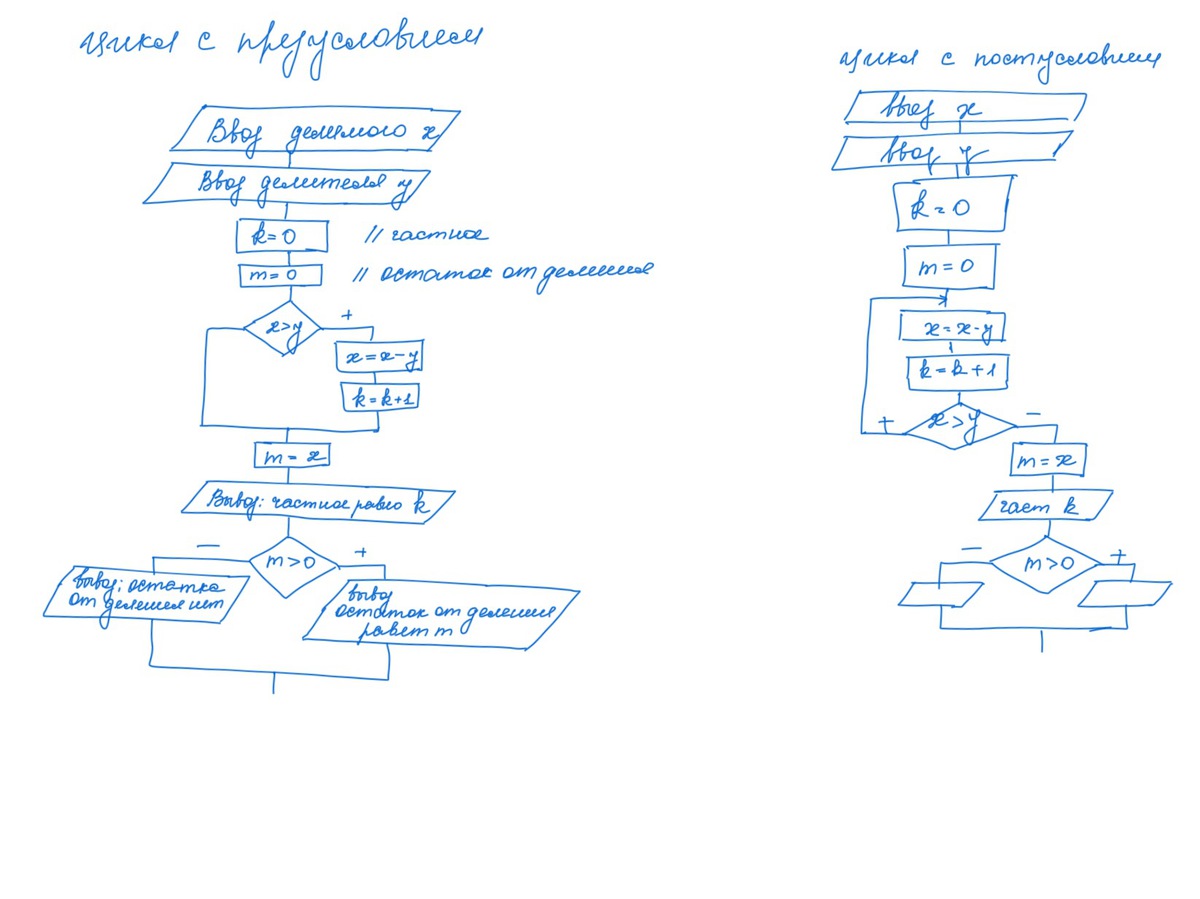 цикл с предусловием
Ввод делимого x
Ввод делителя y
k=0 // частное
m=0 // остаток от деления
x>y
+
x=x-y
k=k+1
m=x
Вывод: частное равно k
m>0
−
+
вывод: остатка
от деления нет
вывод
остаток от деления
равет m
цикл с постусловием
ввод x
ввод y
k=0
m=0
x=x-y
k=k+1
x>y
+
−
m=x
част k
m>0
−
+